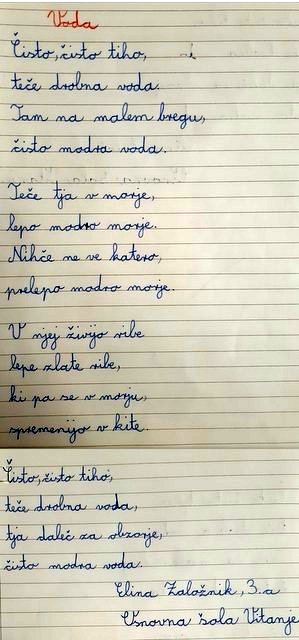 Voda
Čisto, čisto tiho,
teče drobna voda.
Tam na malem bregu,
čisto modra voda.
Teče tja v morje,
lepo modro morje.
Nihče ne ve katero,
prelepo modro morje.
V njej živijo ribe
lepe zlate ribe,
ki pa se v morju,
spremenijo v kite.
Čisto, čisto tiho,
teče drobna voda,
tja daleč za obzorje,
čisto modra voda.
Elina Založnik, 3. a
Osnovna šola Vitanje